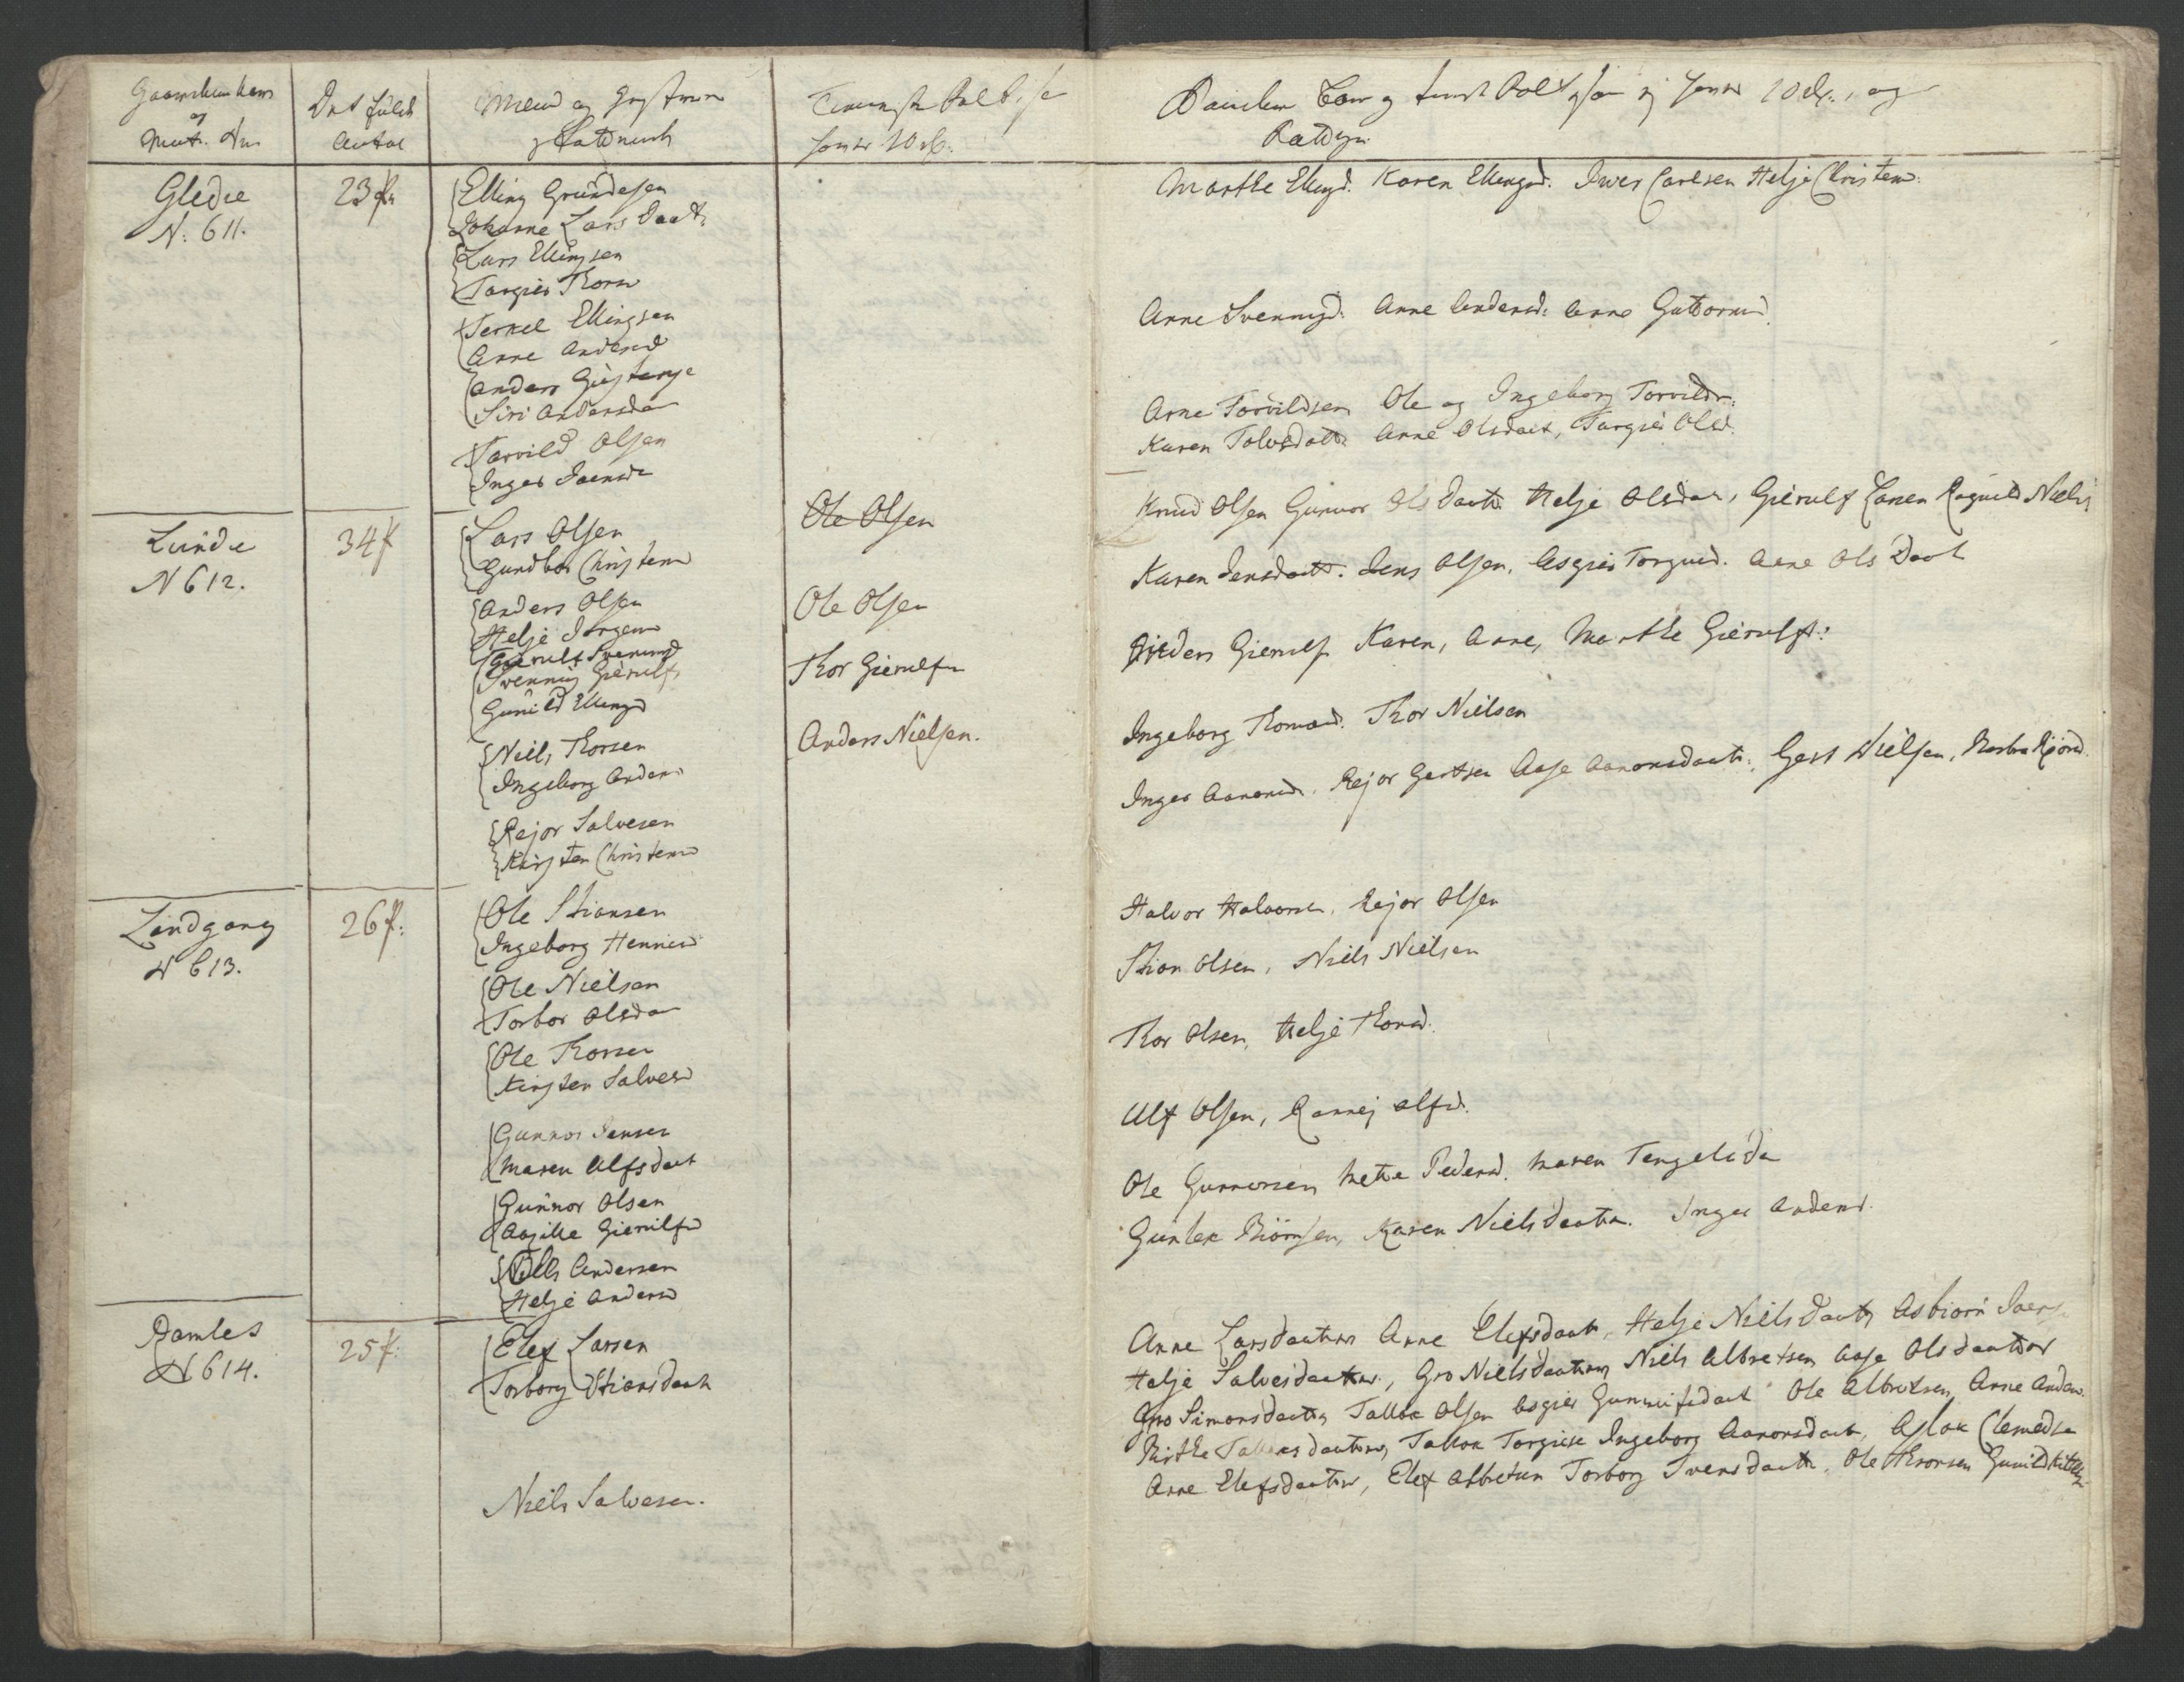 og
Mat. Nr.
Det fulde
Antal
Mænd og
10
og
10
og
Gledie
N: 611.
23 p
Elling Grundesen
Johanne Lars Daat:
Lars Ellingsen
Targier Thors
Terkel Ellingsen
Anne Andersd
Anders
Siri Andersda
Torvild Olsen
Inger Joensd
Marthe Ellingd. Karen Ellingsd. Iwer Carlsen Helje Christens
Anne Svenningd: Anne Andersd: Anne Guttormsd.
Arne Torvildsen Ole og Ingeborg Torvilds:
Karen Tolvsdatt Anne Olsdaat, Targier Olsd.
Lunde
N 612.
34 p
Lars Olsen
Gundbor Christensd
Anders Olsen
Helje Jørgens
Gierulf Svennings
Svenning Gierulfs
Gunild Ellingd
Niels Thorsen
Ingeborg Anders
Rejor Salvesen
Kirsten Christensd
Ole Olsen
Ole Olsen
Thor Gierulfsen
Anders Nielsen.
Knud Olsen Gunvor Olsdaatt Helje Olsdaa, Gierulf Larsen Ragnild Niels
Karen Jensdaatt. Jens Olsen. Asgier Torgusd. Anne Ols Daat
Gierulf Karen, Anne, Marthe Gierulfs:
Ingeborg Thomasd. Thor Nielsen
Inger Aanonsd. Rejor Gertsen Aase Aanonsdaatt: Gert Nielsen,
Lindgang
N 613.
26 p:
Ole Stiansen
Ingeborg Henriesd
Ole Nielsen
Torbor Olsdaa
Ole Thorsen
Kirsten Salvesd
Gunnor Jensen
Maren Ulfsdaat
Gunnor Olsen
Aagille Gierulfsd
Niels Andersen
Helje Andersd
Halvor Halvorsen, Rejor Olsen
Stian Olsen, Niels Nielsen
Thor Olsen, Helje Thorsd.
Ulf Olsen, Rannej Olfsd.
Ole Gunnorsen Mette Pedersd. Maren Tengelsda
Gunlek Biørnsen, Karen Nielsdaatter. Inger Andersd.
Ramles
N 614.
25 p:
Elef Larsen
Torborg Stiansdaat
Niels Salvesen.
Anne Larsdaatter Anne Elefsdaat, Helje Nielsdaatt Asbiørn Joens
Helje Salvesdaatter, Gro Nielsdaatter Niels Albretsen Aase Olsdaatter
Gro Simonsdaatter Tallak Olsen Asgier Gunnulfsdaat Ole Albretsen Anne Anders.
Birthe Tallaksdaatter, Tallak Torgiers Ingeborg Aanonsdaat, Aslak Clemedsen
Anne Elefsdaatter, Elef Albretsen Torborg Svensdaatt, Ole Thronsen Gunild